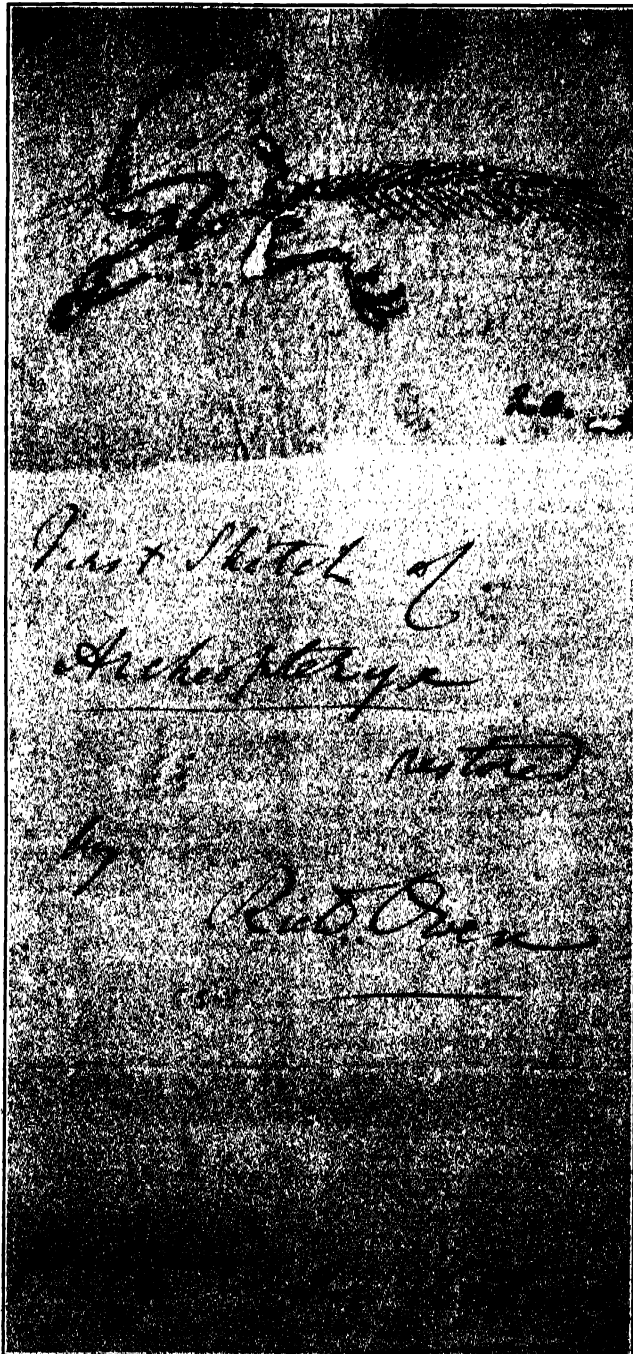 First Sketch of
Archeopteryx
restored
by
Richd. Owen